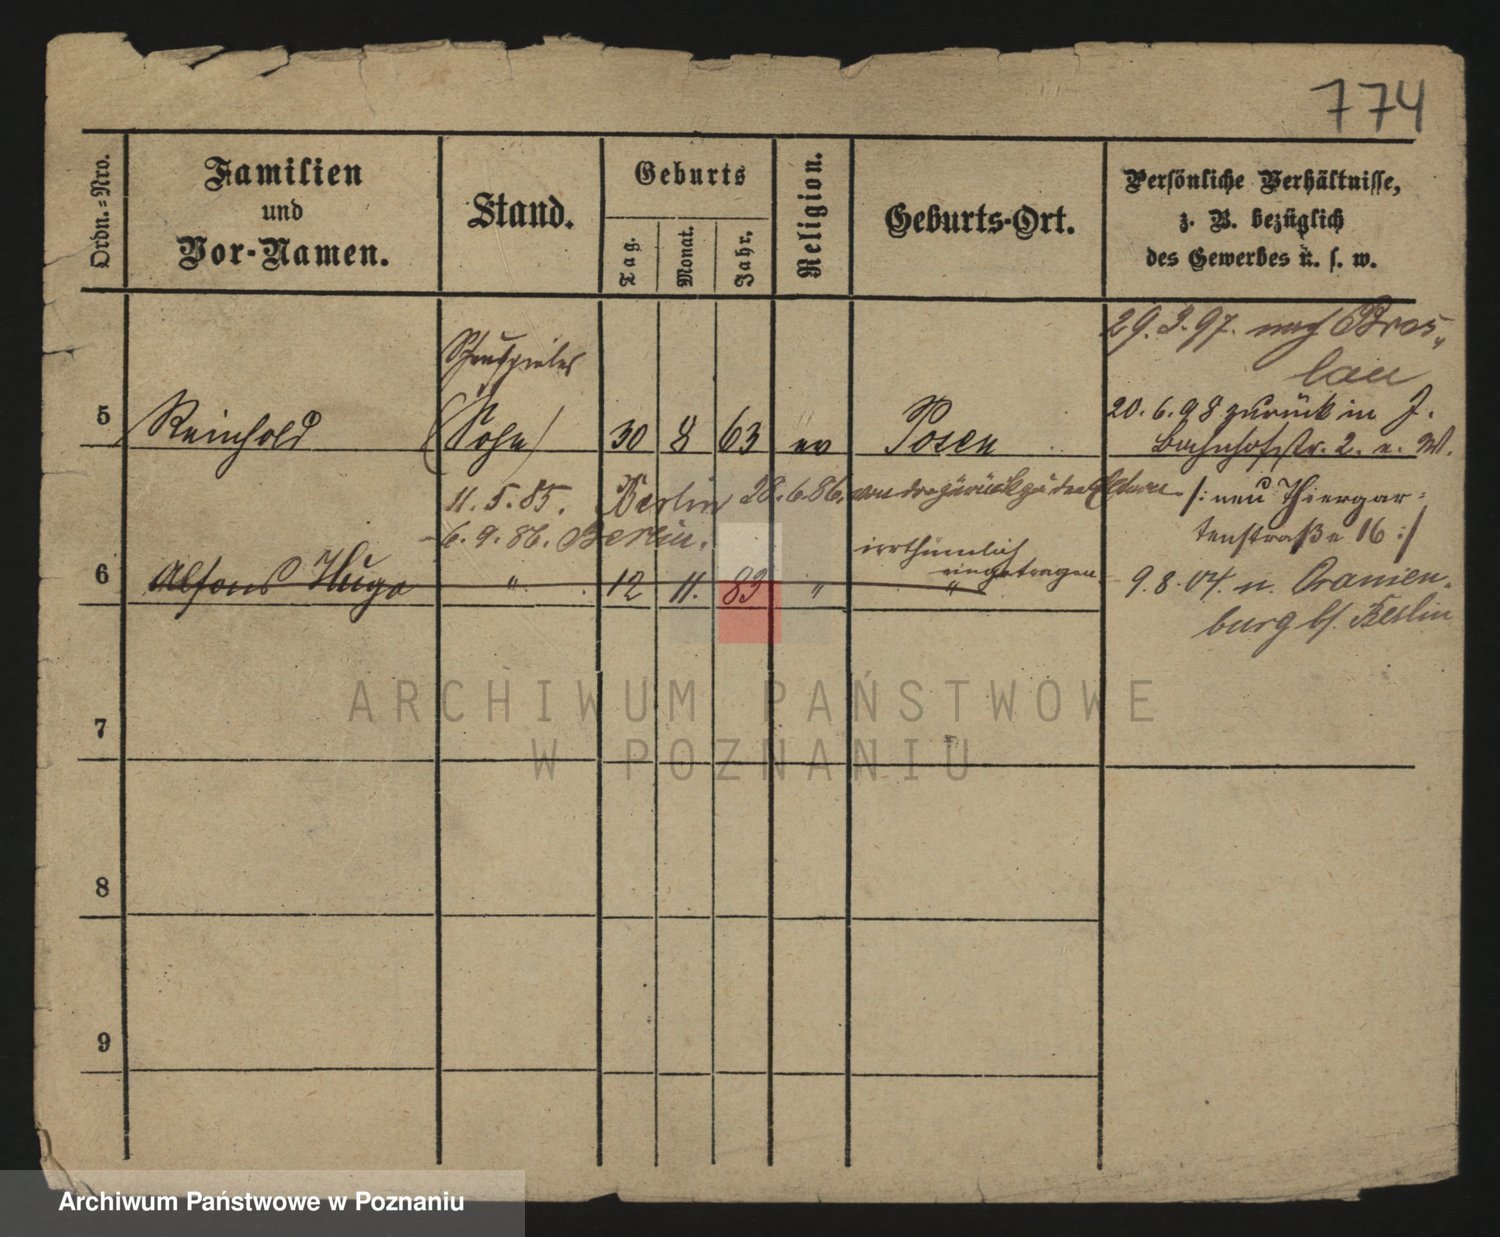 774
Ordn.=Nro.
Familien
und
Vor-Namen.
Stand.
Geburts
Tag.
Monat.
Jahr.
Religion.
Geburts-Ort.
Persönliche Verhältnisse,
z. B. bezüglich
des Gewerbes u. s. w.
29.3.97. nach Bres-
lau
Schauspieler
5 Reinhold (Sohn) 30 8 63 ev Posen
20.6.98 zurück in J.
Bahnhofstr. 2. n. W.
11.5.85. Berlin 28.6.86. zurück zu den Eltern
/: neu Thiergar=
tenstraße 16 :/
6.9.86. Berlin.
irrthümlich
eingetragen
6 Alfons Hugo " 12 11. 83 " "
9.8.04. n. Oranien-
burg b/. Berlin
7
8
9
ARCHIWUM PAŃSTWOWE
W POZNANIU
Archiwum Państwowe w Poznaniu